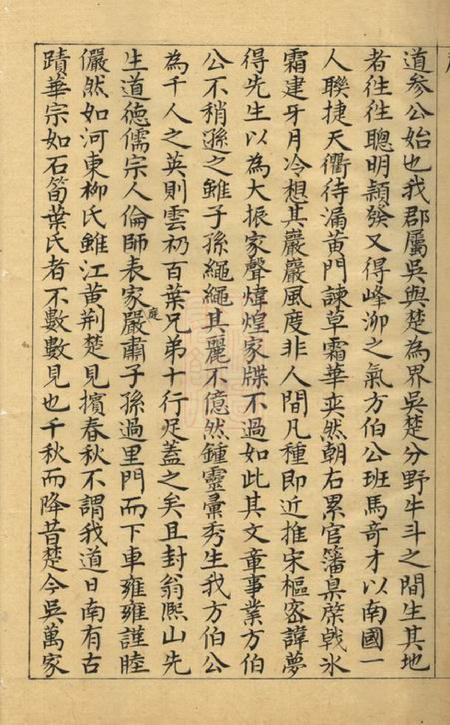 道參公始也我郡屬吳與楚為界吳楚分野牛斗之間生其地
者徃徃聰明頴發又得峰泖之氣方伯公班馬奇才以南國一
人聯捷天衢待漏黃門諫草霜華奕然朝右累官藩臬棨戟氷
霜建牙月冷想其巖巖風度非人間凡種即近推宋樞密諱夢
得先生以為大振家聲煒煌家牒不過如此其文章事業方伯
公不稍孫之雖子孫繩繩其麗不億然鍾靈彙秀生我方伯公
為千人之英則雲礽百葉兄弟十行足蓋之矣且封翁熈山先
生道德儒宗人倫師表家嚴庭肅子孫過里門而下車雍雍謹睦
儼然如河東柳氏雖江黃荆楚見擯春秋不謂我道日南有古
蹟華宗如石笥葉氏者不數數見也千秋而降昔楚今吳萬家